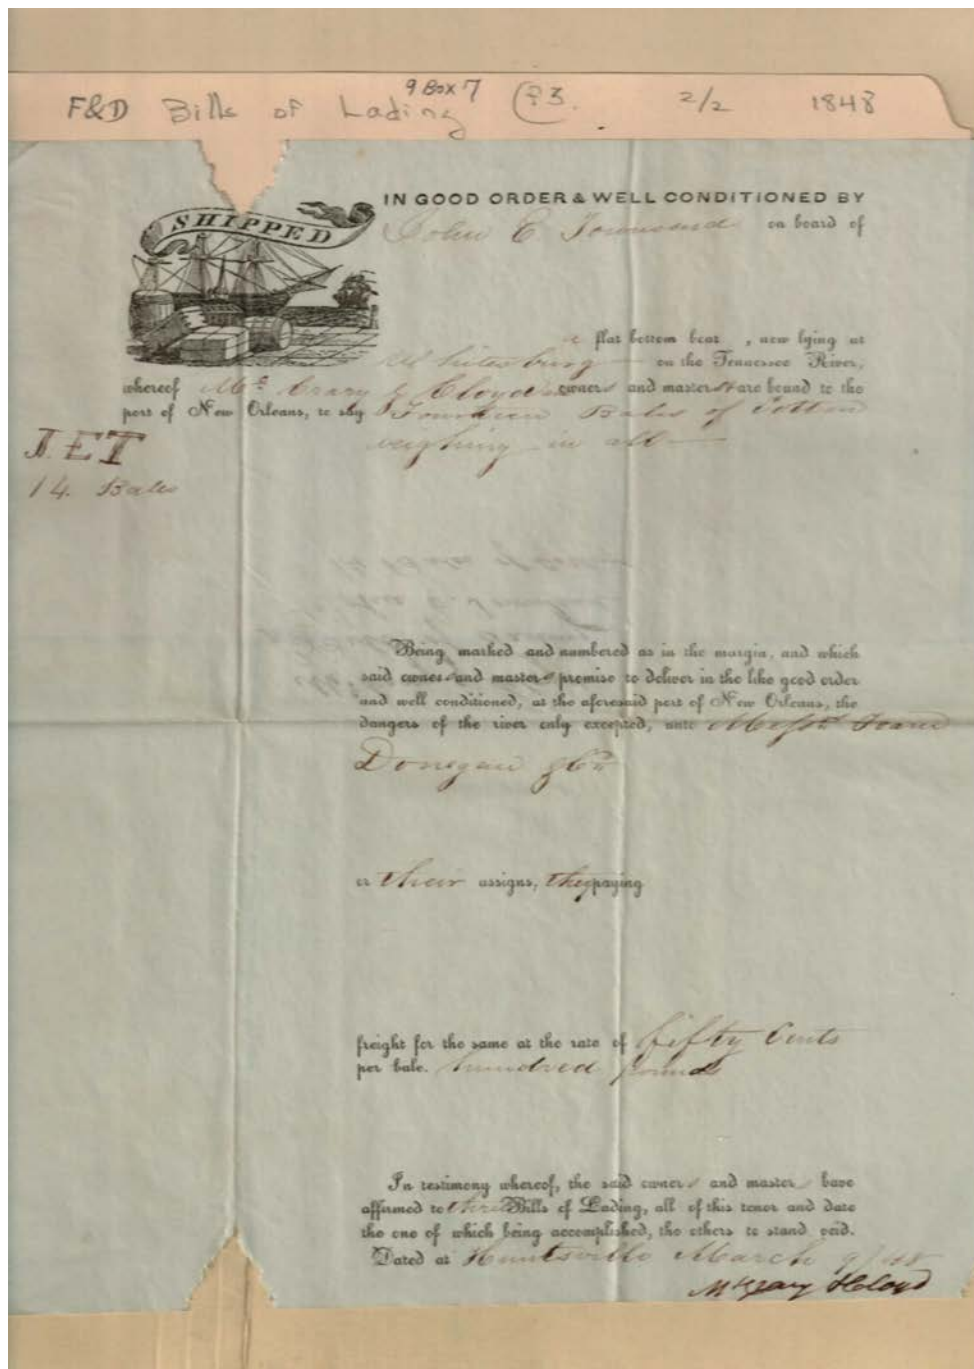 F&D Bills of Lading 9 Box 7 F3. 2/2 1848
SHIPPED
IN GOOD ORDER & WELL CONDITIONED BY
John E. Townsend on board of
a flat bottom boat, now lying at
Whitesburg on the Tennessee River,
whereof Mc Crary & Cloyd owners and masters are bound to the
port of New Orleans, to say Fourteen Bales of Cotton
weighing in all
JET
14. Bales
Being marked and numbered as in the margin, and which
said owners and masters promise to deliver in the like good order
and well conditioned, at the aforesaid port of New Orleans, the
dangers of the river only excepted, unto Messrs
Donegan & Co
or their assigns, they paying
freight for the same at the rate of fifty Cents
per bale. hundred pounds
In testimony whereof, the said owners and master have
affirmed to three Bills of Lading, all of this tenor and date
the one of which being accomplished, the others to stand void.
Dated at Huntsville March 9/48
McCrary & Cloyd